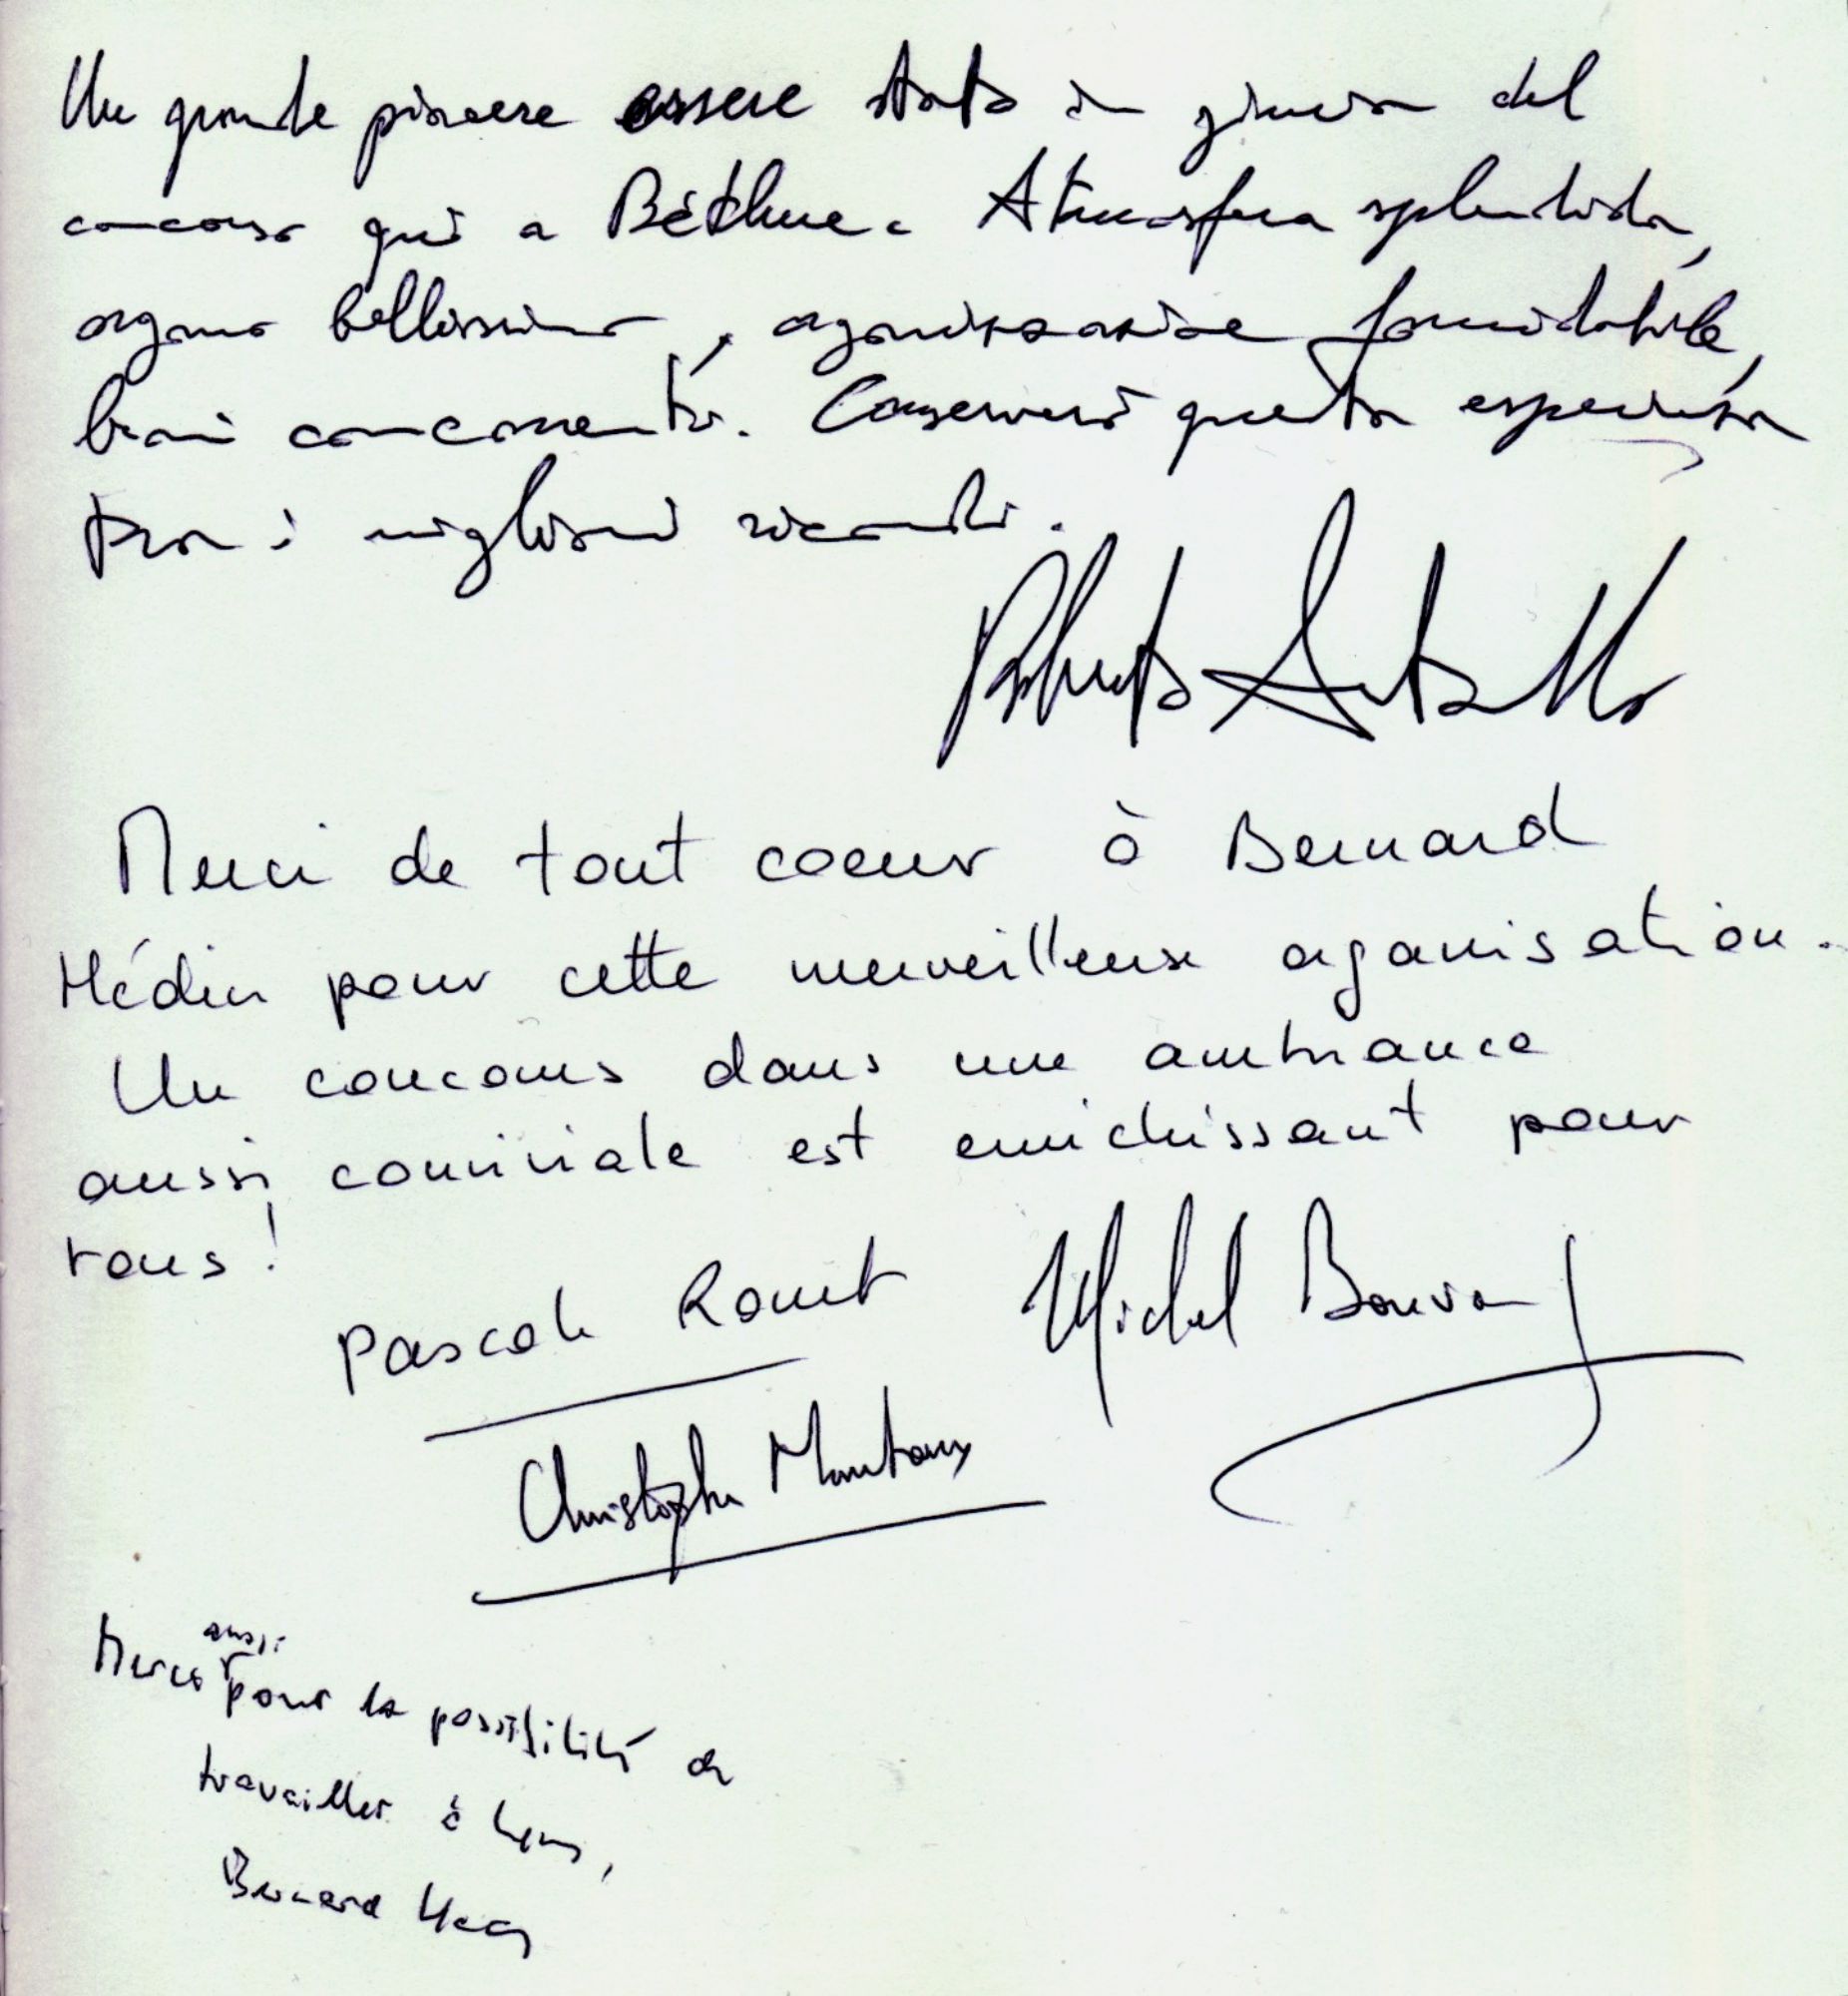 Un grande piacere essere stato in giuria del
concorso qui a Béthune. Atmosfera splendida,
organo bellissimo, organizzazione formidabile,
bravi concorrenti. Conserverò questa esperienza
tra i migliori ricordi.
Roberto Antonello
Merci de tout coeur à Bernard
Hédin pour cette merveilleuse organisation.
Un concours dans une ambiance
aussi conviviale est enrichissant pour
tous !
Pascale Rouet Michel Bouvard
Christophe Mantoux
aussi
Merci pour la possibilité de
travailler à Lens,
Bernard Haas